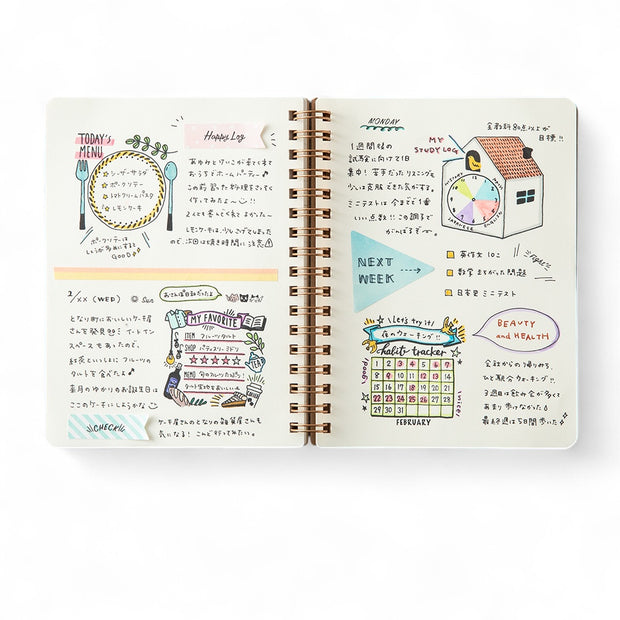 TODAY's
MENU
シーザーサラダ
ポークソテー
トマトクリームパスタ
レモンケーキ
ポークソテーは
しょうが多めにすると
GOOD
Happy Log
あゆみとけいこが来てくれて
おうちでホームパーティー♪
この前習った料理をさっそく
作ってみたよ〜!!
2人とも喜んでくれてよかった〜
レモンケーキは、少しこげてしまった
ので、次回は焼き時間に注意
2/XX (WED)
Sun
おさんぽ日和だったよ
となり町においしいケーキ屋
さんを発見!! イートイン
スペースもあったので、
紅茶といっしょにフルーツの
タルトを食べたよ♪
来月のゆかりのお誕生日は
ここのケーキにしようかな
MY FAVORITE
ITEM フルーツタルト
SHOP パティスリーミドリ
★★★★★
MEMO 旬のフルーツたっぷり!
タルト生地もおいしい
CHECK!
ケーキ屋さんのとなりの雑貨屋さんも
気になる! こんど行ってみたい。
MONDAY
1週間後の
試験に向けて1日
集中! 苦手だったリスニングも
少しは克服できた気がする。
ミニテストは今までで1番
いい点数!! この調子で
がんばるぞ〜
MY
STUDY LOG
全教科80点以上が
目標!!
HISTORY
MATH
ENGLISH
JAPANESE
NEXT
WEEK
英作文10こ
数学まちがった問題
日本史ミニテスト
Fight!
Let's try it!
夜のウォーキング!!
habit tracker
1 2 3 4 5 6 7
8 9 10 11 12 13 14
15 16 17 18 19 20 21
22 23 24 25 26 27 28
29 30 31
good!
nice!
FEBRUARY
BEAUTY
and HEALTH
会社からの帰りみち、
ひと駅分ウォーキング!!
3週目は飲み会が多くて
あまり歩けなかった
最終週は5日間歩いた